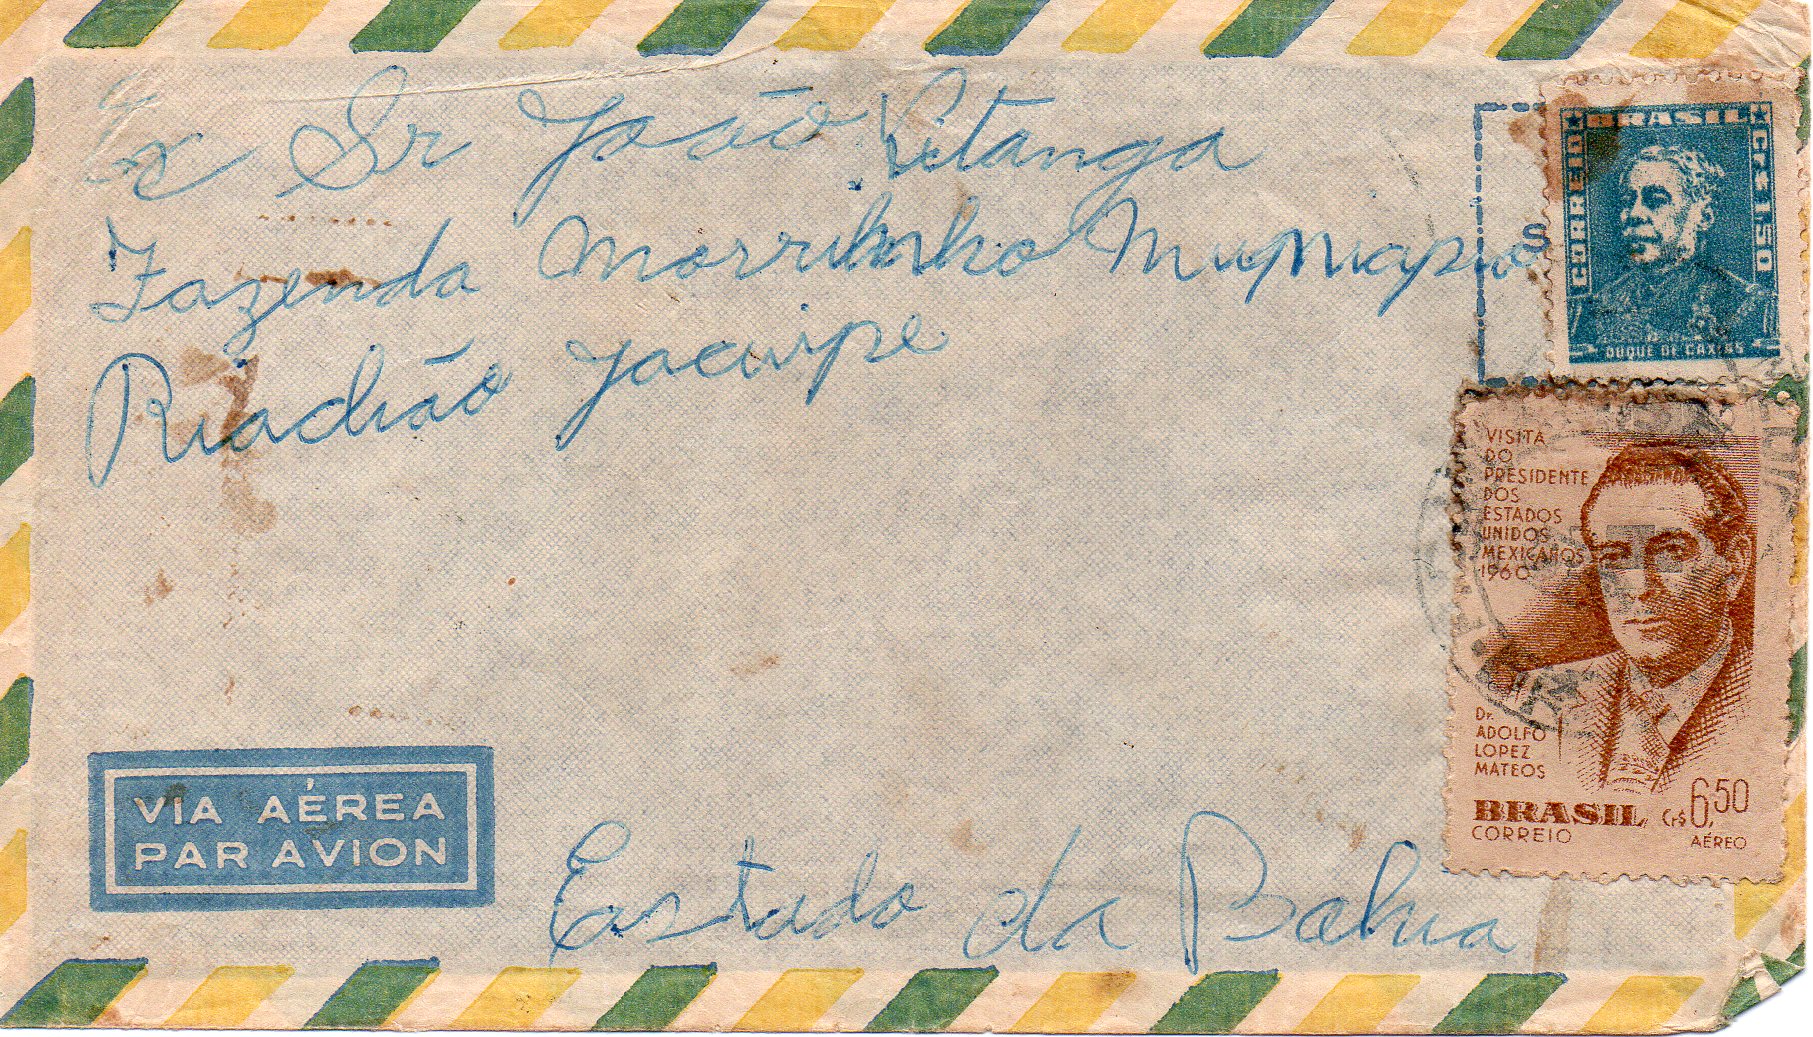 Sr João Pitanga
Fazenda Morrinho Municipio
Riachão Jacuipe
Estado da Bahia
VIA AÉREA
PAR AVION
BRASIL
CORREIO
Cr$ 1,50
DUQUE DE CAXIAS
S
VISITA
DO
PRESIDENTE
DOS
ESTADOS
UNIDOS
MEXICANOS
1960
Dr.
ADOLFO
LOPEZ
MATEOS
BRASIL Cr$ 6,50
CORREIO AÉREO